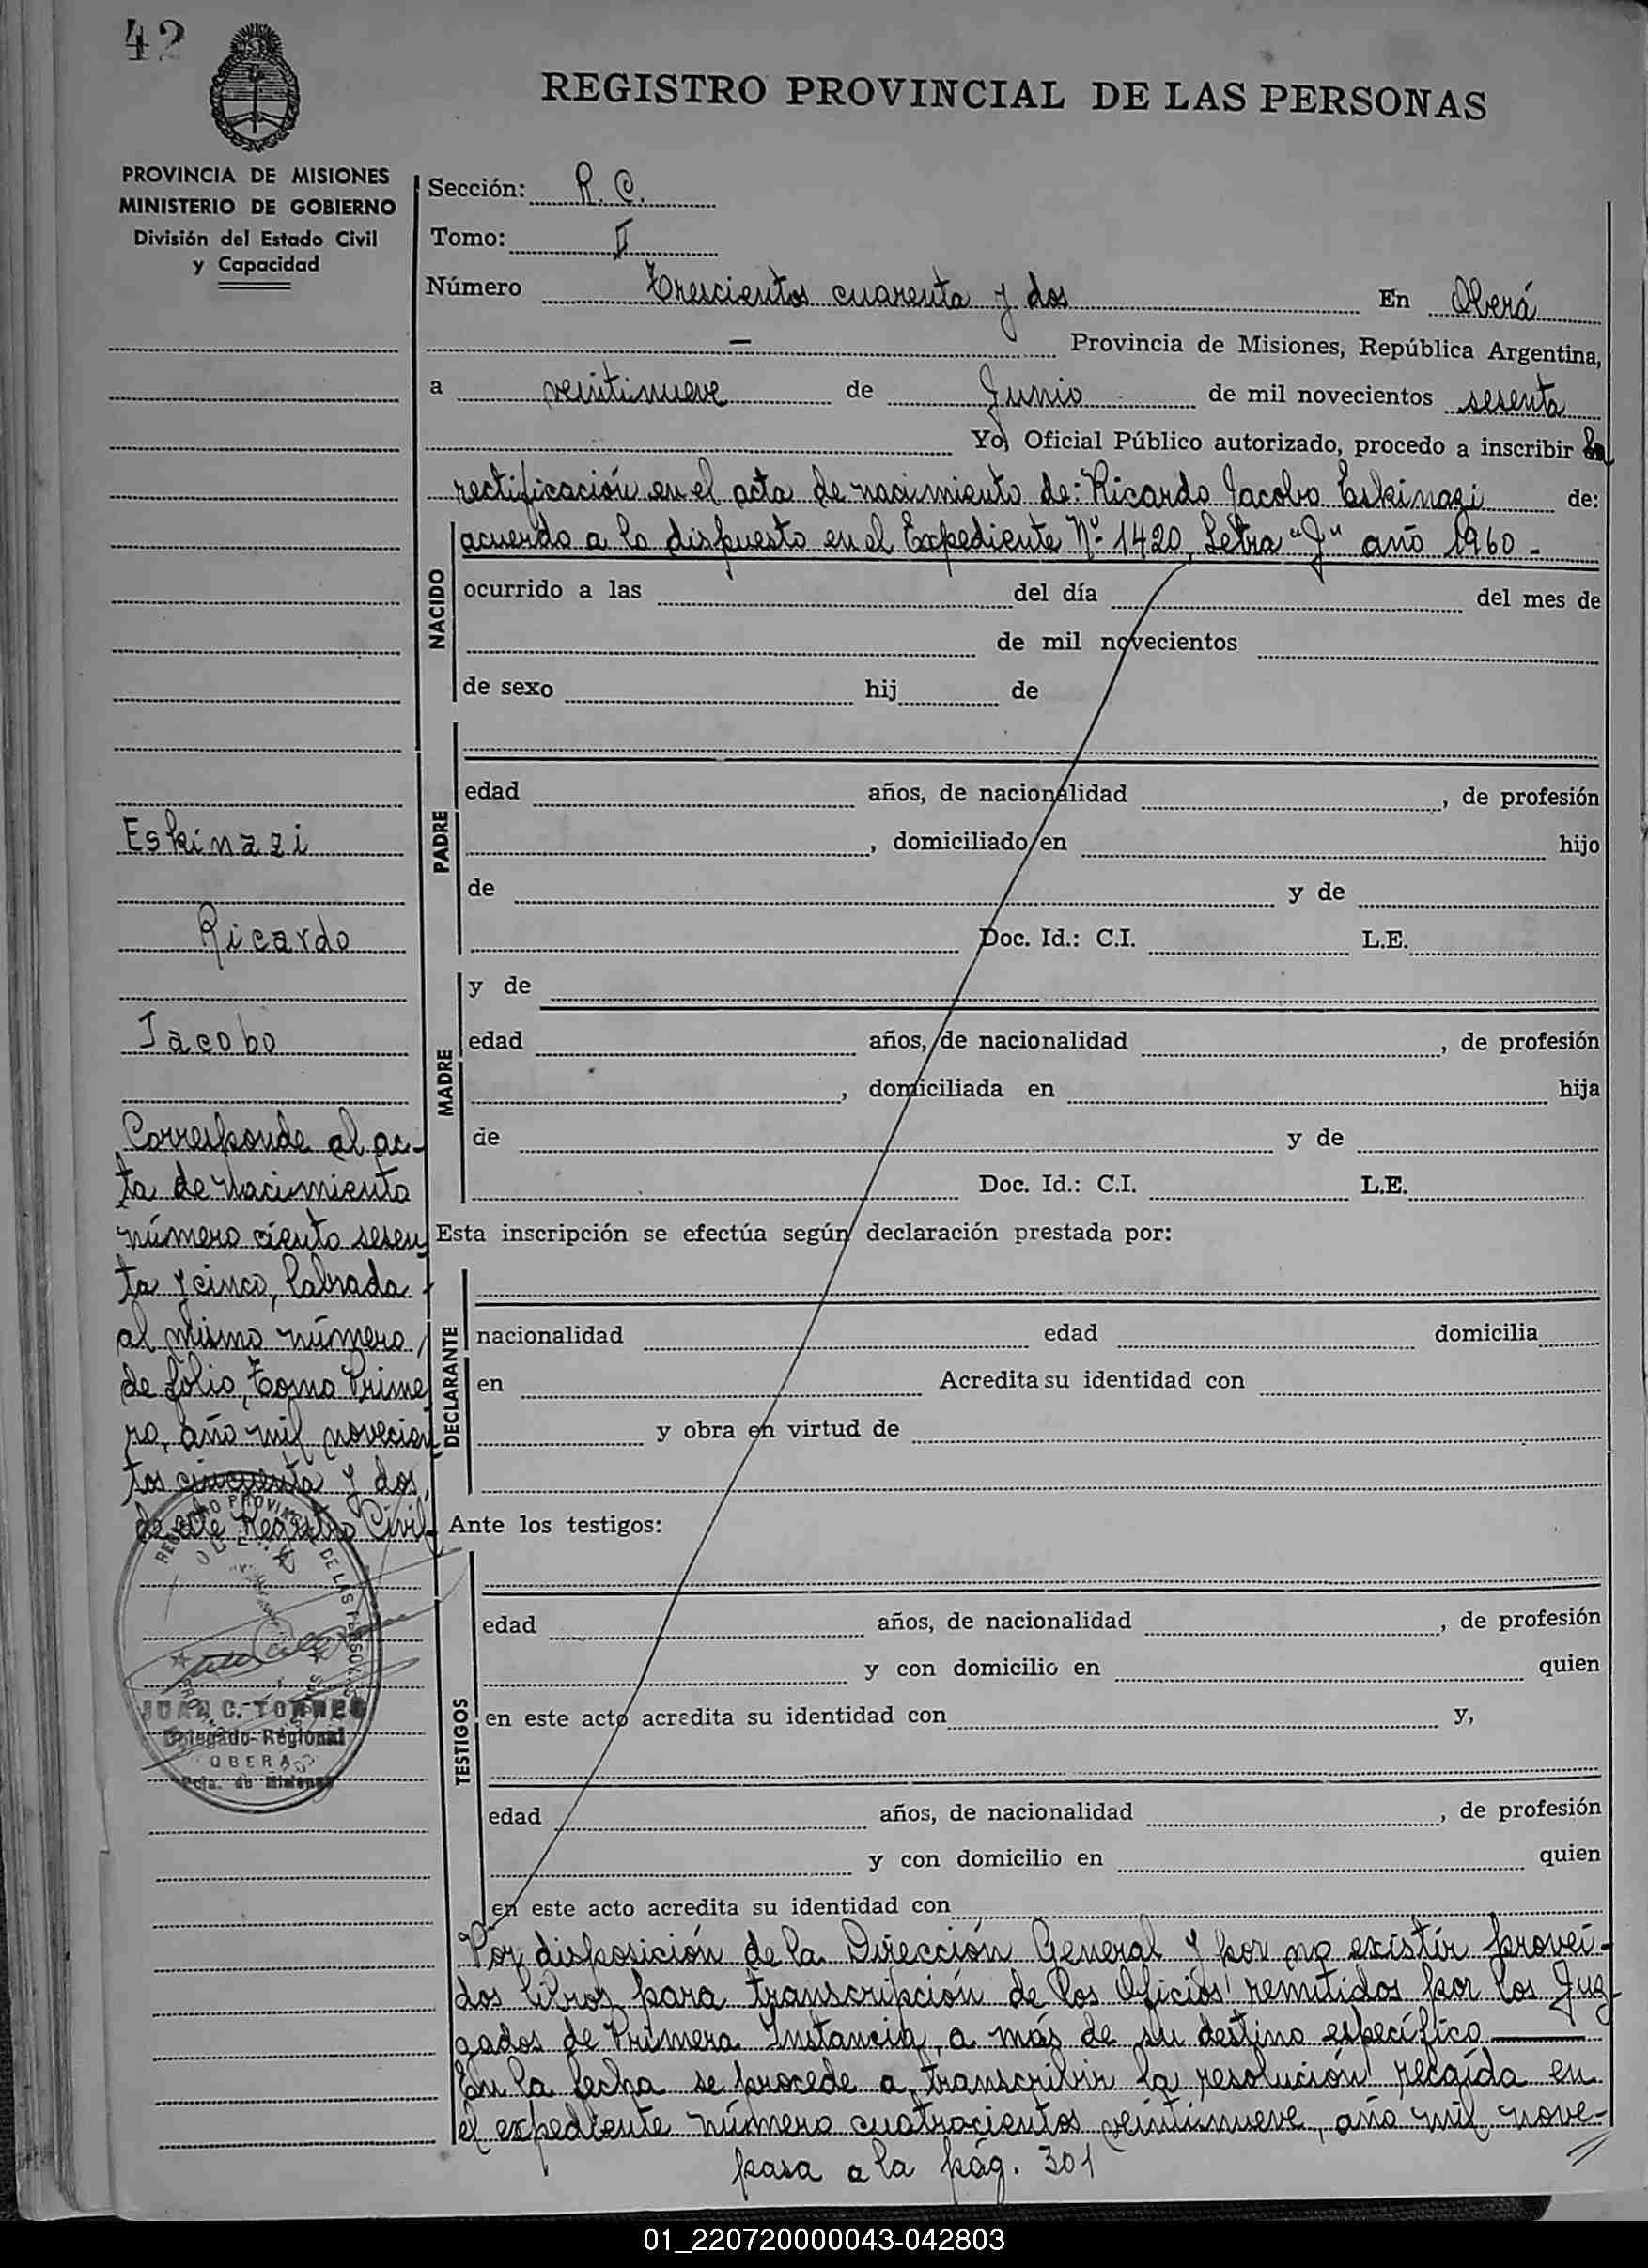 42
REGISTRO PROVINCIAL DE LAS PERSONAS
PROVINCIA DE MISIONES
MINISTERIO DE GOBIERNO
División del Estado Civil
y Capacidad
Sección: R. C.
Tomo: II
Número Trescientos cuarenta y dos En Oberá
— Provincia de Misiones, República Argentina,
a veintinueve de Junio de mil novecientos sesenta
Yo, Oficial Público autorizado, procedo a inscribir la
rectificación en el acta de nacimiento de: Ricardo Jacobo Eskinazi de:
acuerdo a lo dispuesto en el Expediente Nº 1420, Letra "J" año 1960 -
NACIDO
ocurrido a las del día del mes de
de mil novecientos
de sexo hij de
PADRE
edad años, de nacionalidad , de profesión
, domiciliado en hijo
de y de
Doc. Id.: C.I. L.E.
MADRE
y de
edad años, de nacionalidad , de profesión
, domiciliada en hija
de y de
Doc. Id.: C.I. L.E.
Esta inscripción se efectúa según declaración prestada por:
DECLARANTE
nacionalidad edad domicilia
en Acredita su identidad con
y obra en virtud de
Ante los testigos:
TESTIGOS
edad años, de nacionalidad , de profesión
y con domicilio en quien
en este acto acredita su identidad con y,
edad años, de nacionalidad , de profesión
y con domicilio en quien
en este acto acredita su identidad con
Por disposición de la Dirección General y por no existir provei-
dos libros para transcripción de los Oficios remitidos por los Juz
gados de Primera Instancia, a más de su destino específico
En la fecha se procede a transcribir la resolución recaída en
el expediente número cuatrocientos veintinueve, año mil nove-
pasa a la pág. 301
Eskinazi
Ricardo
Jacobo
Corresponde al ac-
ta de nacimiento
número ciento sesen
ta y cinco, labrada
al mismo número
de folio, Tomo Prime
ro, año mil novecien
tos cincuenta y dos,
de este Registro Civil.
REGISTRO PROVINCIAL DE LAS PERSONAS
JUAN C. TORRES
Delegado Regional
OBERA
Pcia. de Misiones
01_220720000043-042803